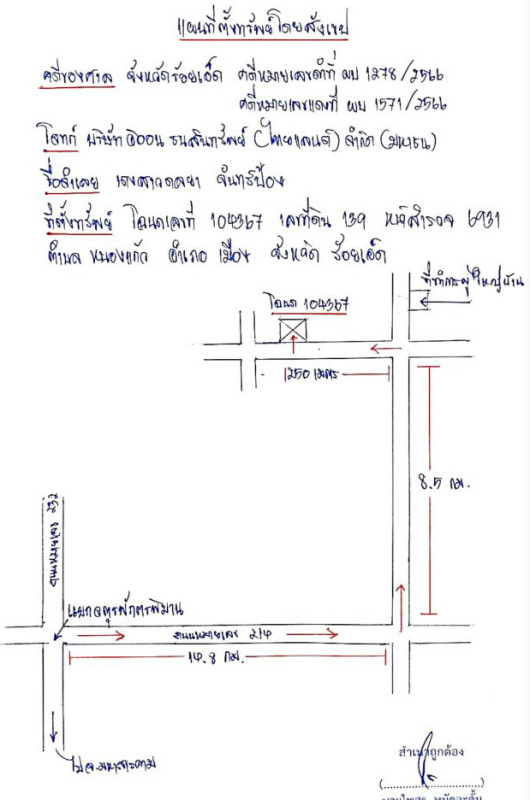 แผนที่ตั้งทรัพย์โดยสังเขป
คดีของศาล จังหวัดร้อยเอ็ด คดีหมายเลขดำที่ ผบ 1278/2566
คดีหมายเลขแดงที่ ผบ 1571/2566
โจทก์ บริษัท อิออน ธนสินทรัพย์ (ไทยแลนด์) จำกัด (มหาชน)
ชื่อจำเลย
ที่ตั้งทรัพย์ โฉนดเลขที่ 104367 เลขที่ดิน 139 หน้าสำรวจ 6931
ตำบล หนองแก้ว อำเภอ เมือง จังหวัด ร้อยเอ็ด
ที่ทำการผู้ใหญ่บ้าน
โฉนด 104367
250 เมตร
8.5 กม.
ถนนหมายเลข 232
แยกจตุรพักตรพิมาน
ถนนหมายเลข 214
14.8 กม.
ไป จ.มหาสารคาม
สำเนาถูกต้อง